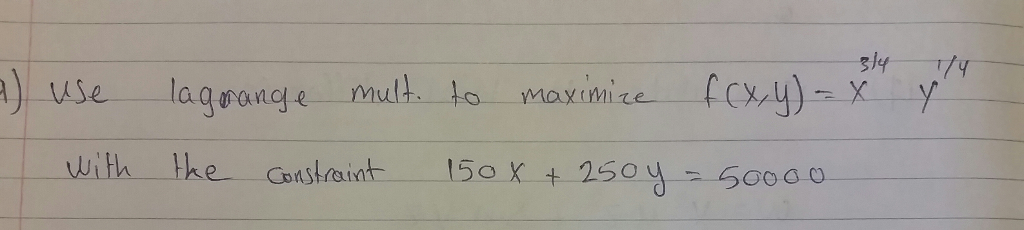 a) use lagrange mult. to maximize f(x,y) = x^3/4 y^1/4
With the constraint 150x + 250y = 50000